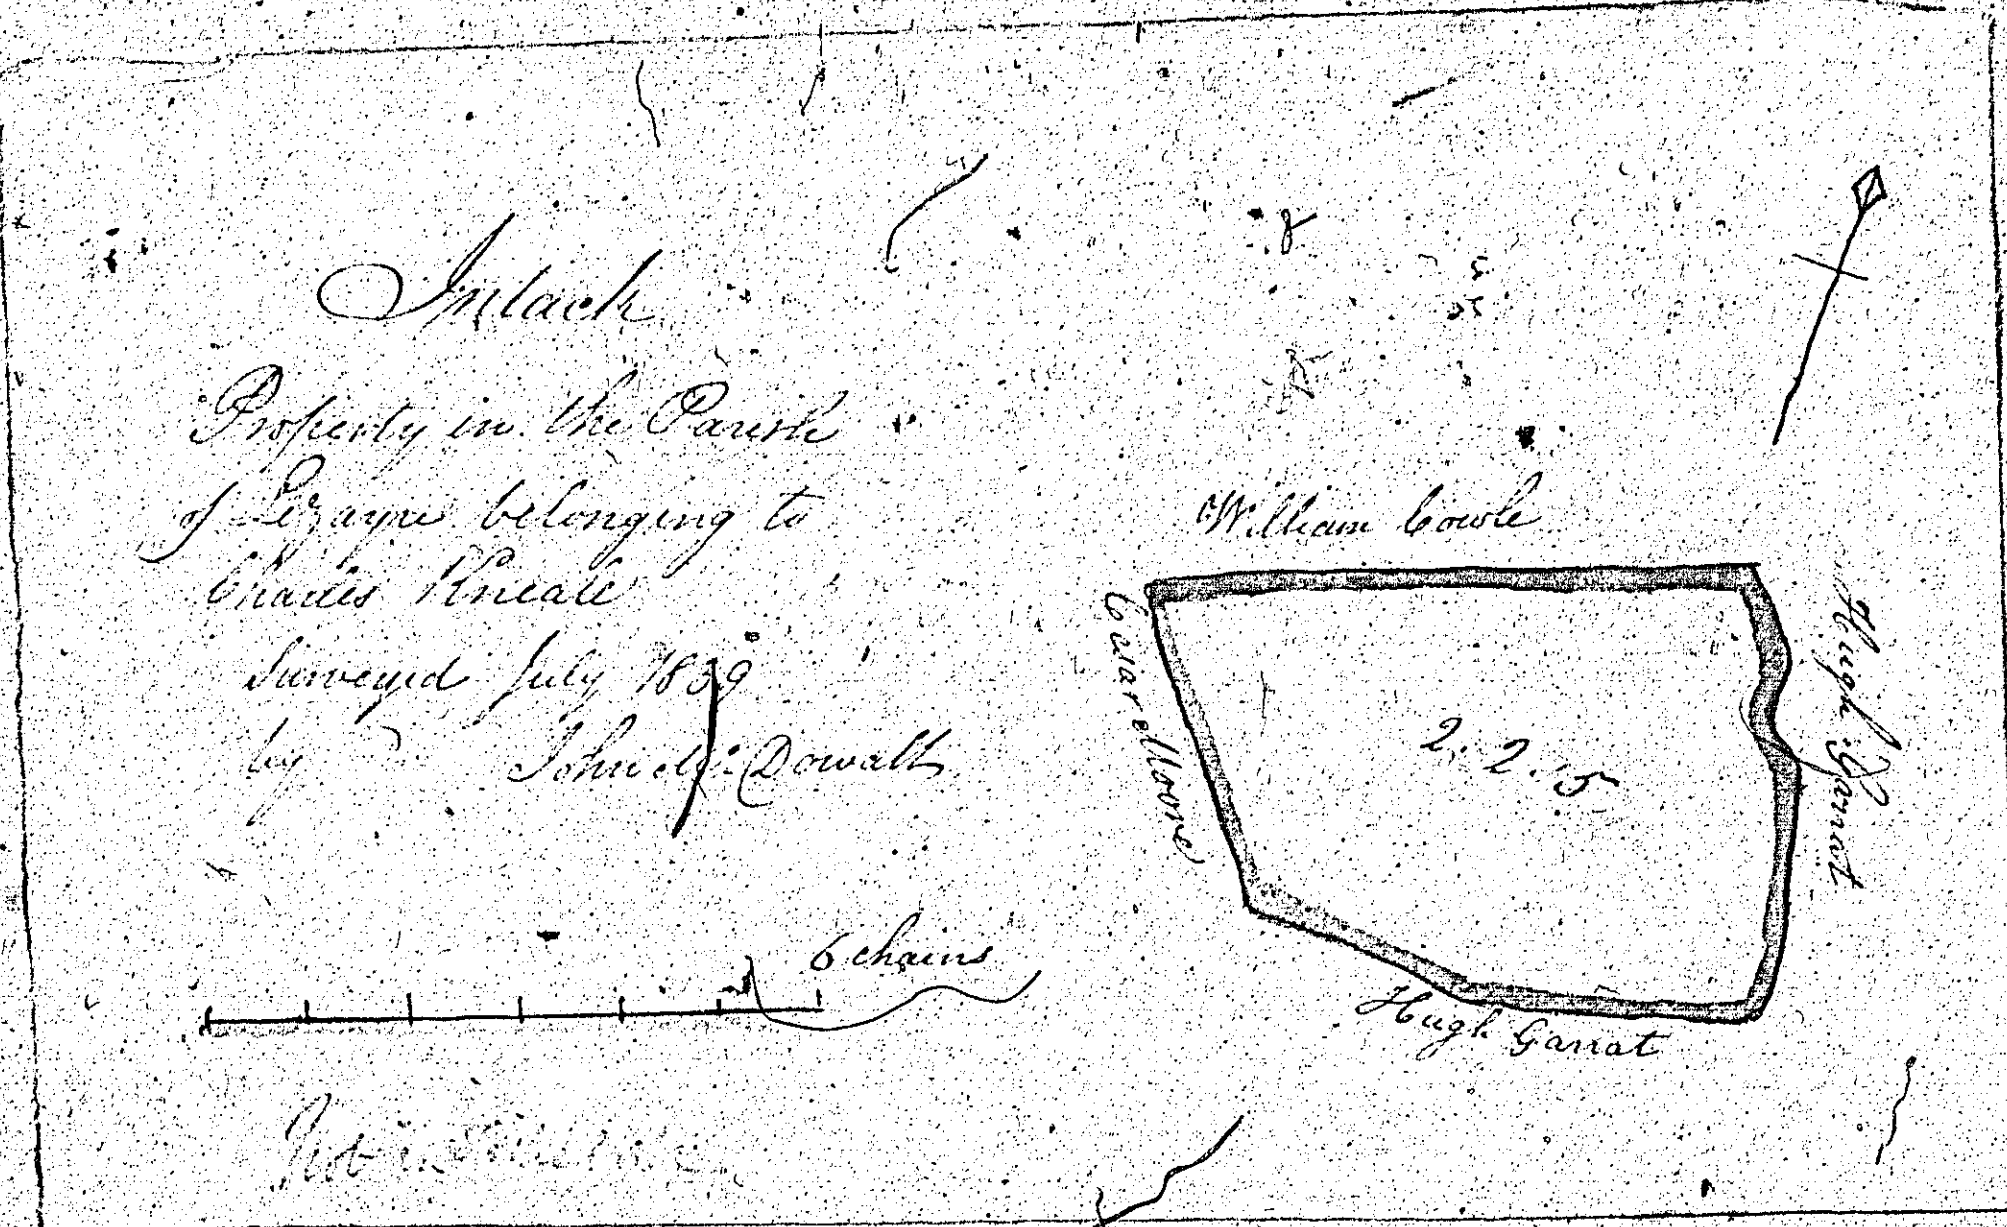 Intack
Property in the Parish
of Lezayre belonging to
Charles Kneale
Surveyed July 1839
by John Mc Dowall
6 chains
William Cowle
Hugh Garrat
Moore
2. 2. 5
Hugh Garrat
Not in